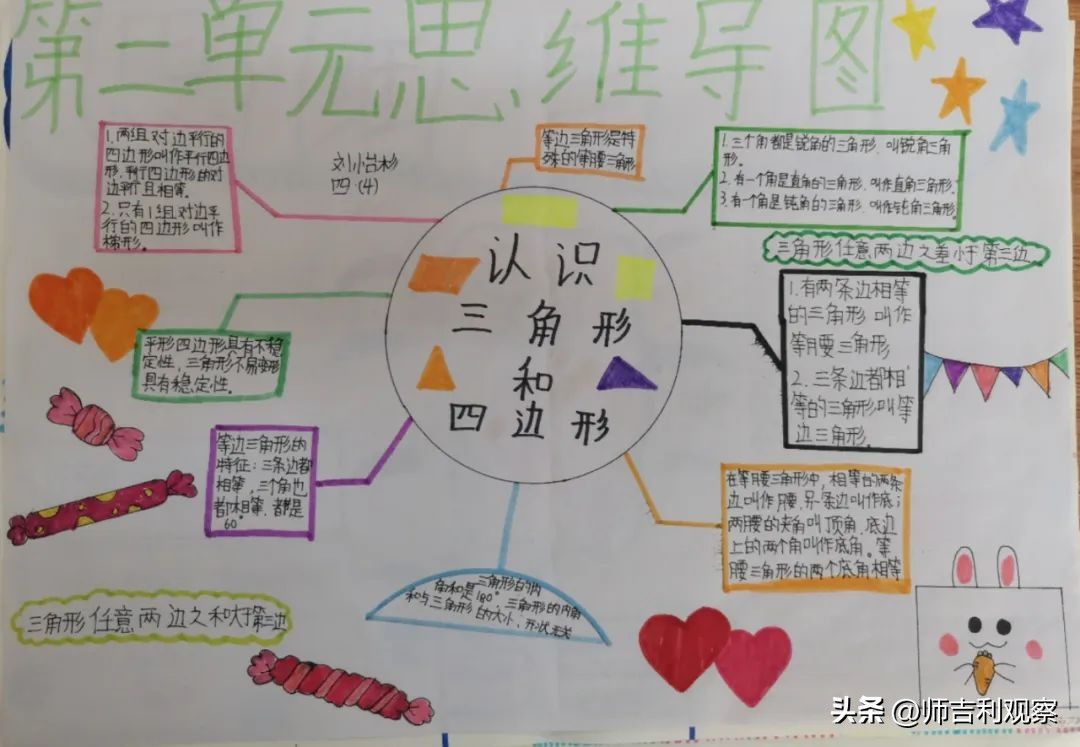 第二单元思维导图
1.两组对边平行的
四边形叫作平行四边
形,平行四边形的对
边平行且相等。
2.只有1组对边平
行的四边形叫作
梯形。
刘怡杉
四.(4)
等边三角形是特
殊的等腰三角形
1.三个角都是锐角的三角形.叫锐角三角
形。
2.有一个角是直角的三角形.叫作直角三角形。
3.有一个角是钝角的三角形.叫作钝角三角形。
三角形任意两边之差小于第三边
认识
三角形
和
四边形
平形四边形具有不稳
定性,三角形不易变形
具有稳定性。
1.有两条边相等
的三角形叫作
等腰三角形
2.三条边都相
等的三角形叫等
边三角形.
等边三角形的
特征:三条边都
相等,三个角也
都相等.都是
60°
在等腰三角形中,相等的两条
边叫作腰,另一条边叫作底;
两腰的夹角叫顶角.底边
上的两个角叫作底角。等
腰三角形的两个底角相等
三角形的内
角和是180°三角形的内角
和与三角形的大小,形状无关
三角形任意两边之和大于第三边
头条 @师吉利观察